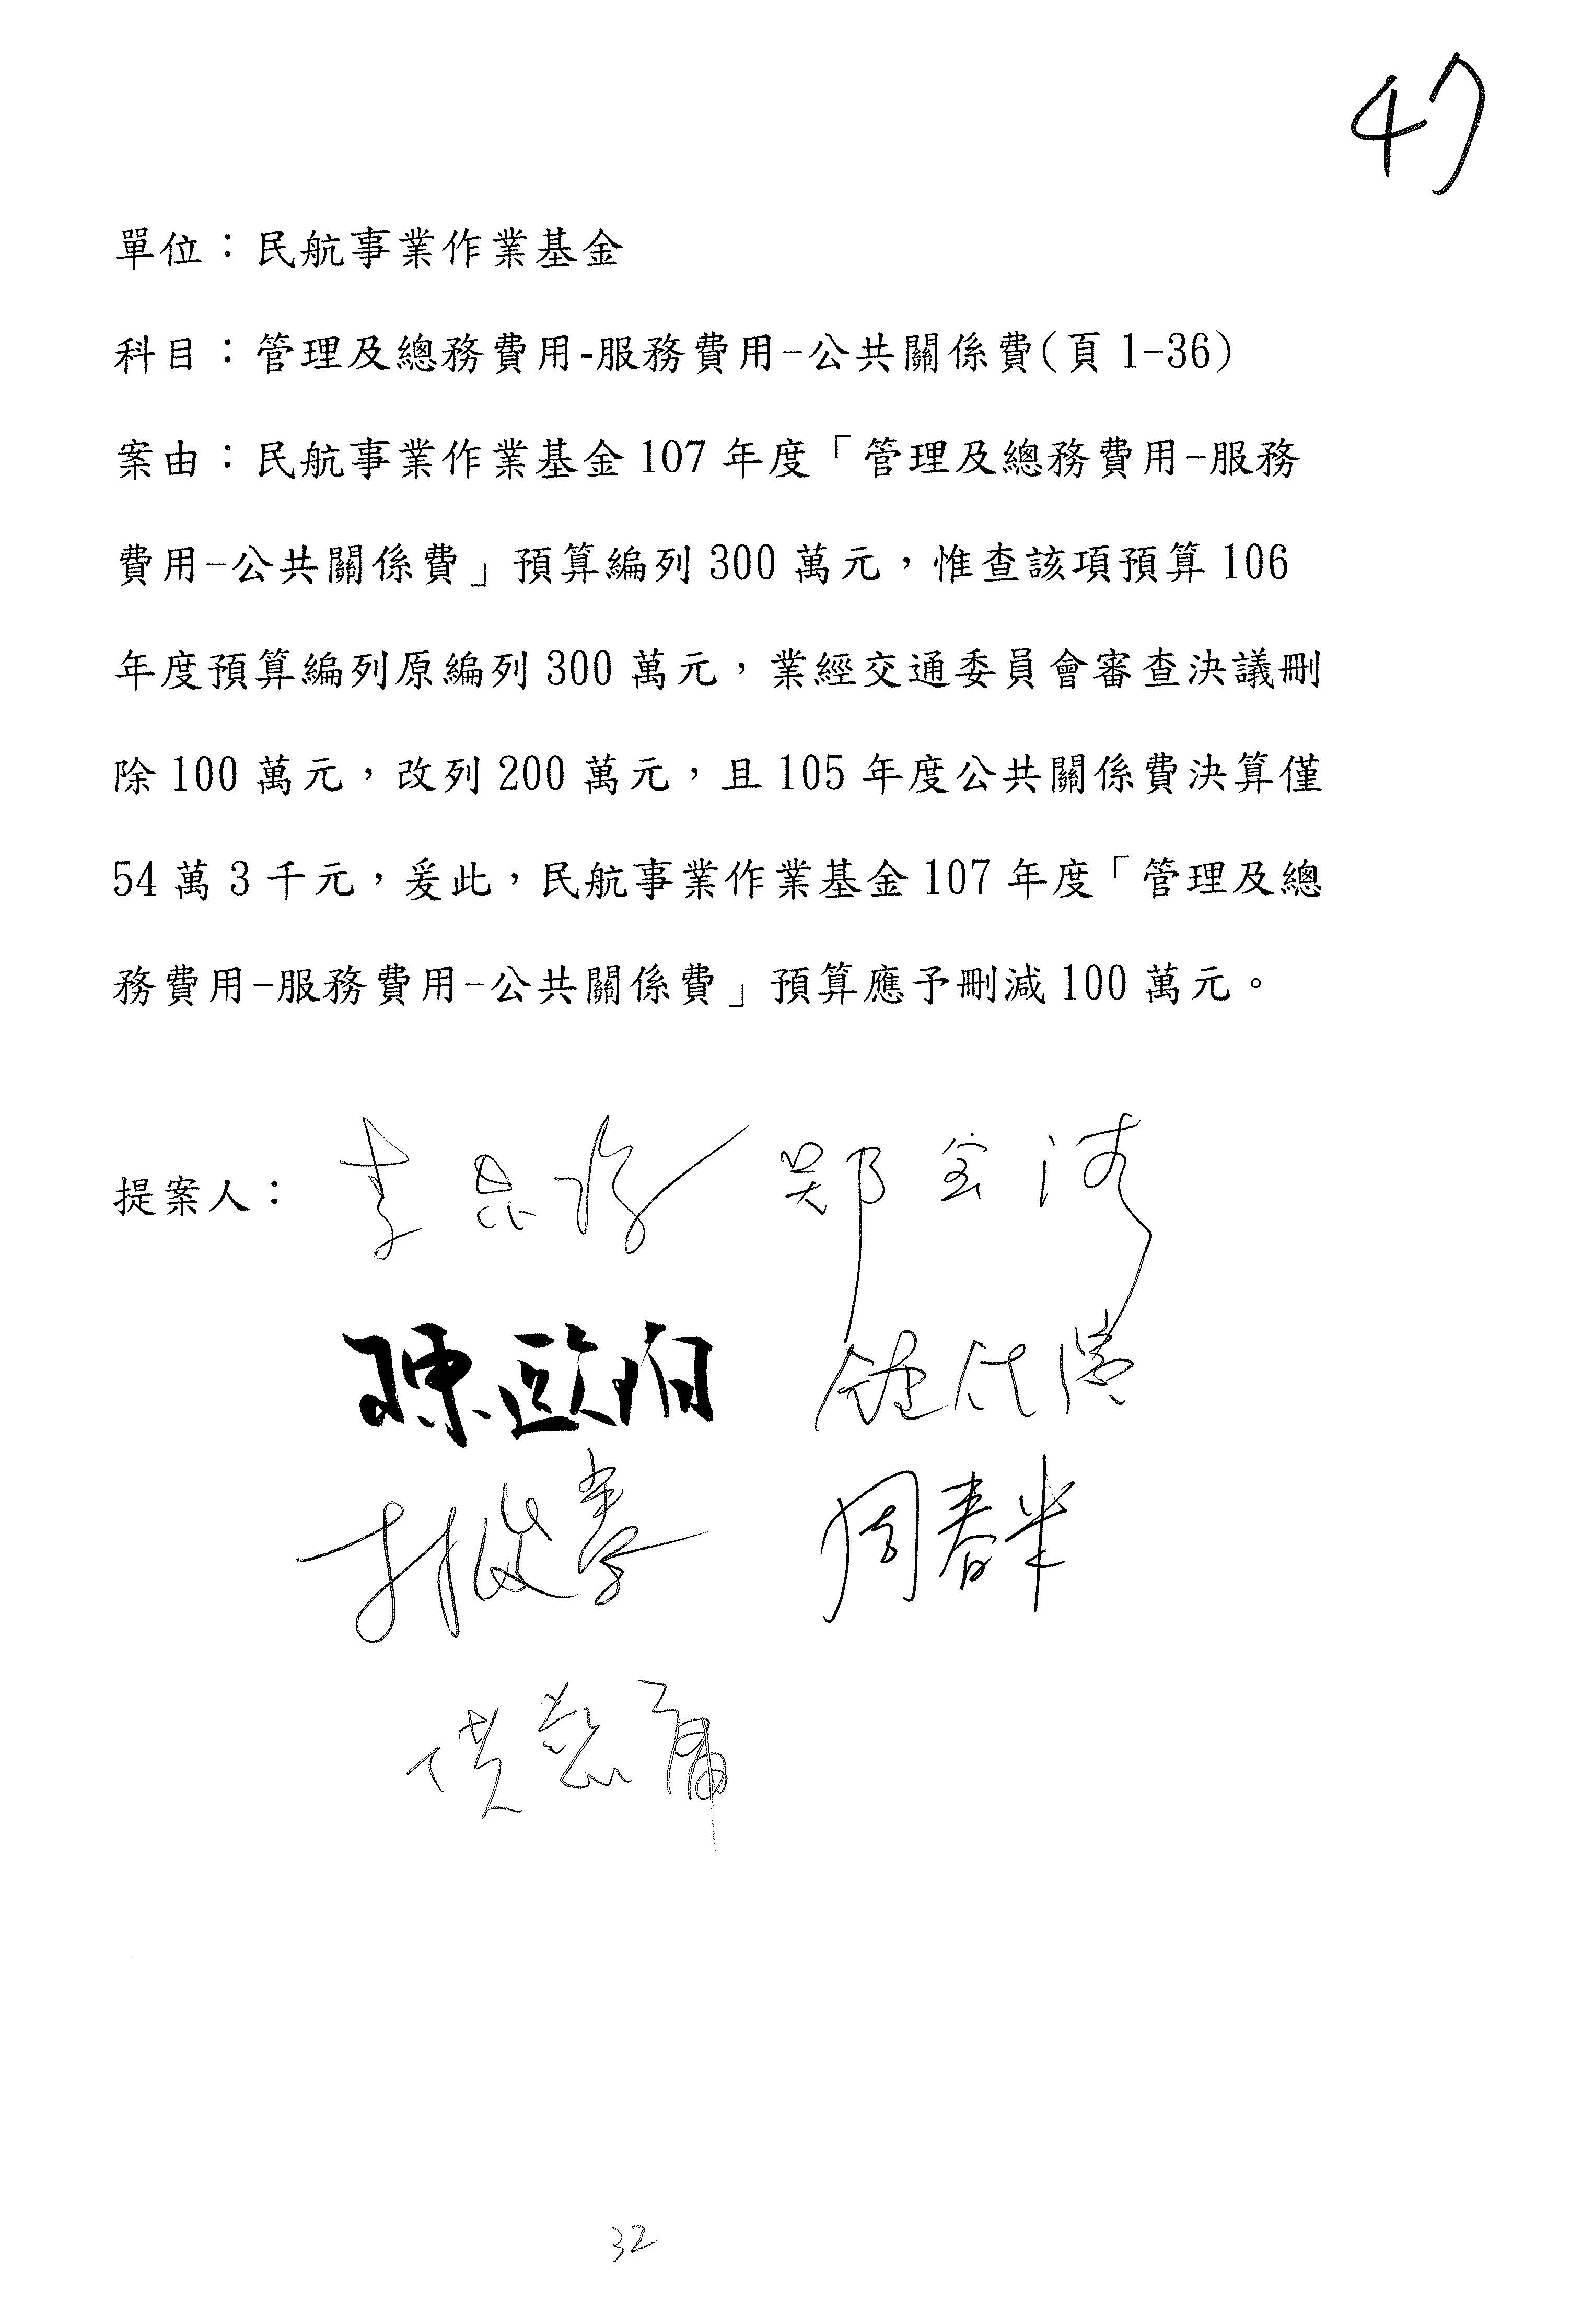 47
單位：民航事業作業基金
科目：管理及總務費用-服務費用-公共關係費(頁1-36)
案由：民航事業作業基金107年度「管理及總務費用-服務
費用-公共關係費」預算編列300萬元，惟查該項預算106
年度預算編列原編列300萬元，業經交通委員會審查決議刪
除100萬元，改列200萬元，且105年度公共關係費決算僅
54萬3千元，爰此，民航事業作業基金107年度「管理及總
務費用-服務費用-公共關係費」預算應予刪減100萬元。
提案人：李昆澤 鄭
陳歐珀
林俊 周春米
32